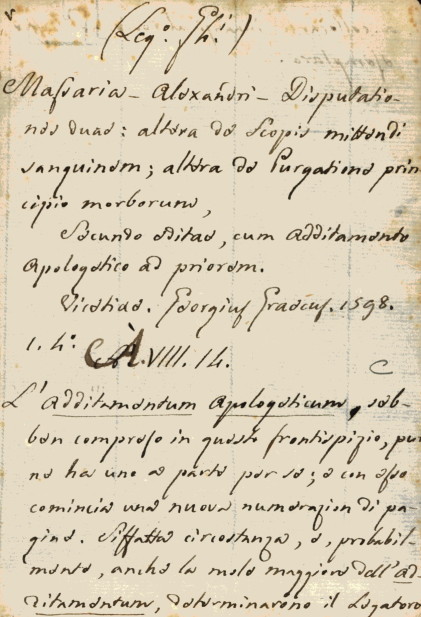 (Leg.º Gh.i)
Massaria - Alexandri - Disputatio-
nes duae: altera de Scopis mittendi
sanguinem; altera de Purgatione prin-
cipio morborum,
Secundo editae, cum Additamento
Apologetico ad priorem.
Vicetiae. Georgius Graecus. 1598.
1. 4.º A.VIII. 14.
L'Additamentum Apologeticum, seb-
ben compreso in questo frontispizio, pu-
re ha uno a parte per se; e con esso
comincia una nuova numerazion di pa-
gine. Siffatta circostanza, e, probabil-
mente, anche la mole maggiore dell'Ad-
ditamentum, determinarono il Legatore